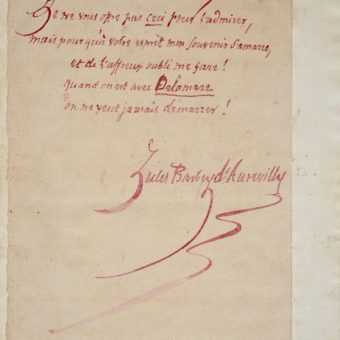 Je ne vous offre pas ceci pour l'admirer,
mais pour qu'à votre esprit mon souvenir s'amarre,
et de l'affreux oubli me gare !
Quand on est avec Delamare
on ne veut jamais démarrer !
Jules Barbey d'Aurevilly